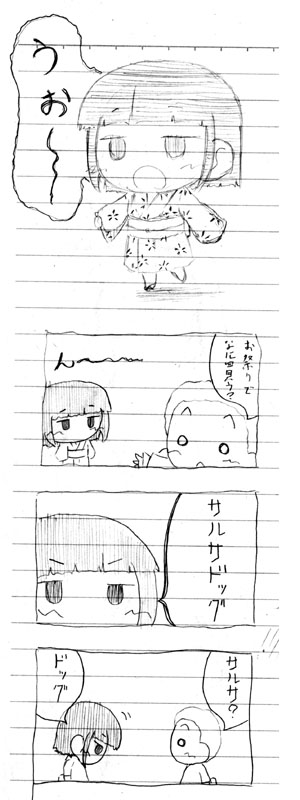 うお〜
お祭りで
なに買う?
ん〜
サルサドッグ
サルサ?
ドッグ